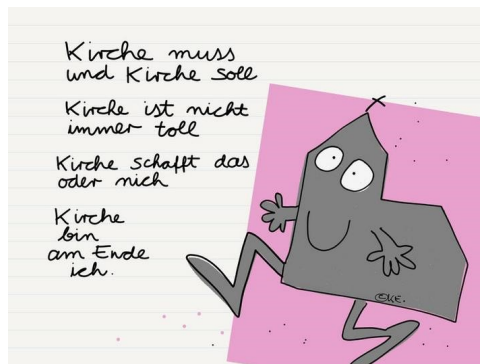 Kirche muss
und Kirche soll
Kirche ist nicht
immer toll
Kirche schafft das
oder nich
Kirche
bin
am Ende
ich.